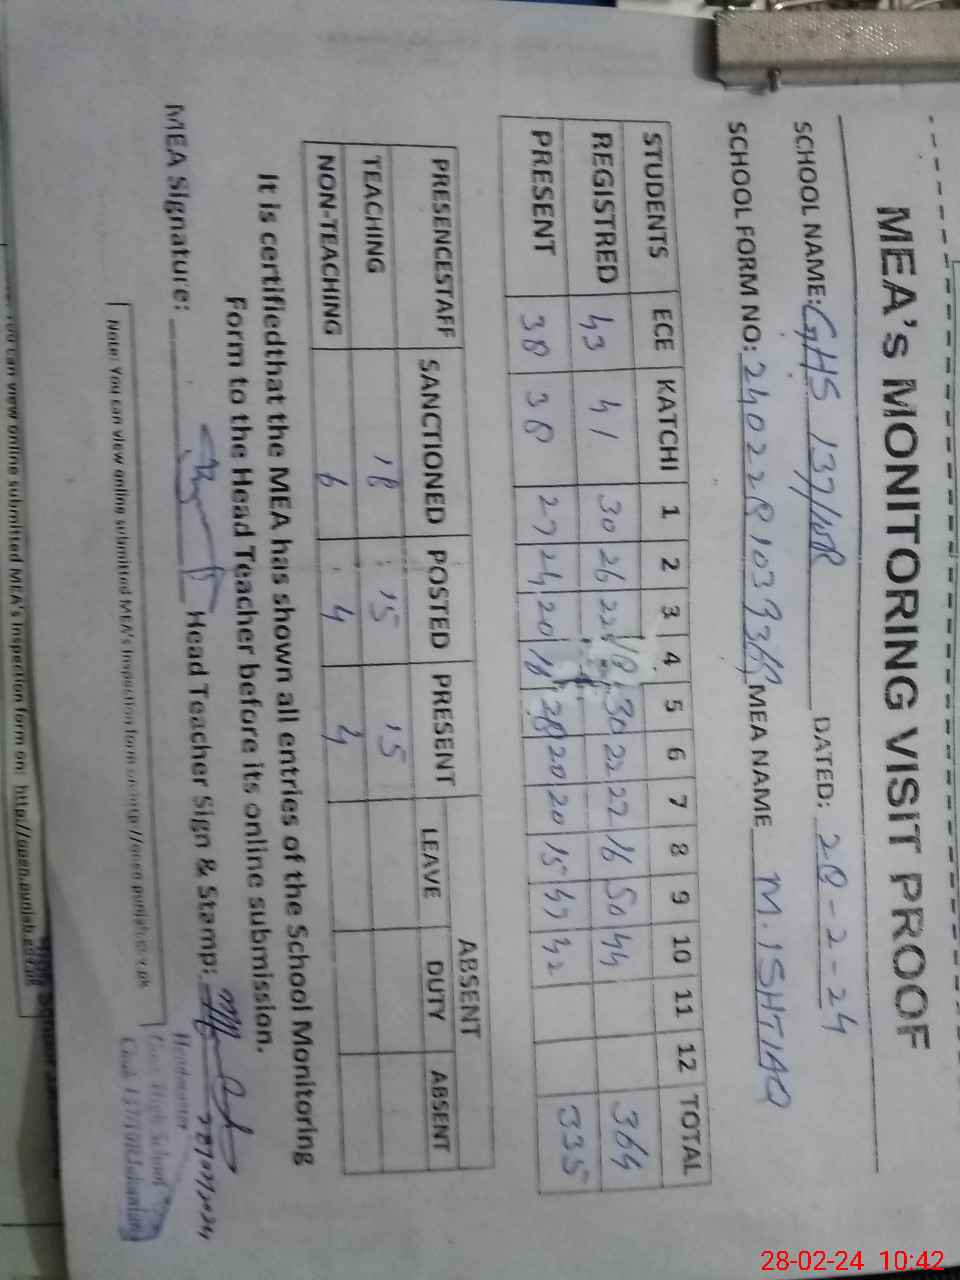 MEA's MONITORING VISIT PROOF
SCHOOL NAME: GHS 137/10R DATED: 28-2-24
SCHOOL FORM NO: MEA NAME M. ISHTIAQ
STUDENTS ECE KATCHI 1 2 3 4 5 6 7 8 9 10 11 12 TOTAL
REGISTRED 43 41 30 26 22 18 30 22 22 16 50 44 364
PRESENT 38 38 27 24 20 18 28 20 20 15 47 42 335
PRESENCESTAFF SANCTIONED POSTED PRESENT ABSENT
LEAVE DUTY ABSENT
TEACHING 18 15 15
NON-TEACHING 6 4 4
It is certifiedthat the MEA has shown all entries of the School Monitoring
Form to the Head Teacher before its online submission.
MEA Signature: Head Teacher Sign & Stamp:
Headmaster
Govt. High School
Chak 137/10R Jahanian
Note: You can view online submitted MEA's Inspection form on: http://open.punjab.gov.pk
You can view online submitted MEA's Inspection form on: http://open.punjab.gov.pk
28-02-24 10:42